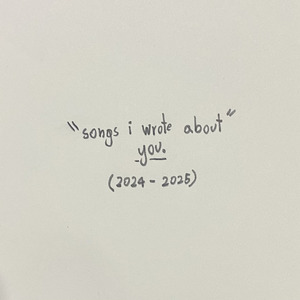 "songs i wrote about"
you.
(2024 - 2025)